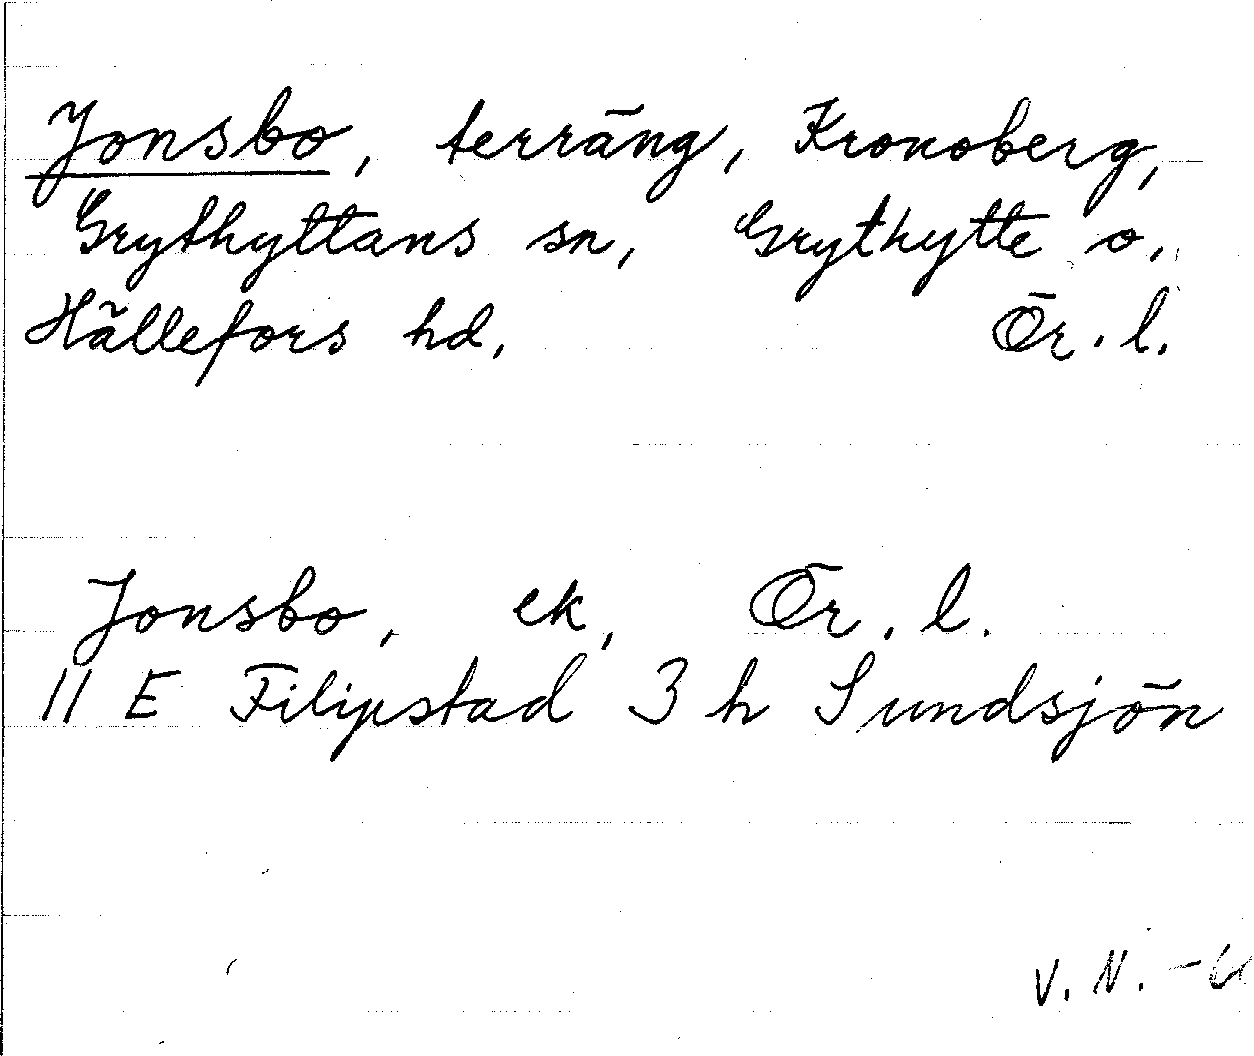 Jonsbo, terräng, Kronoberg,
Grythyttans sn, Grythytte o.
Hällefors hd. Ör. l.
Jonsbo, ek, Ör. l.
11 E Filipstad 3 h Sundsjön
V. N.